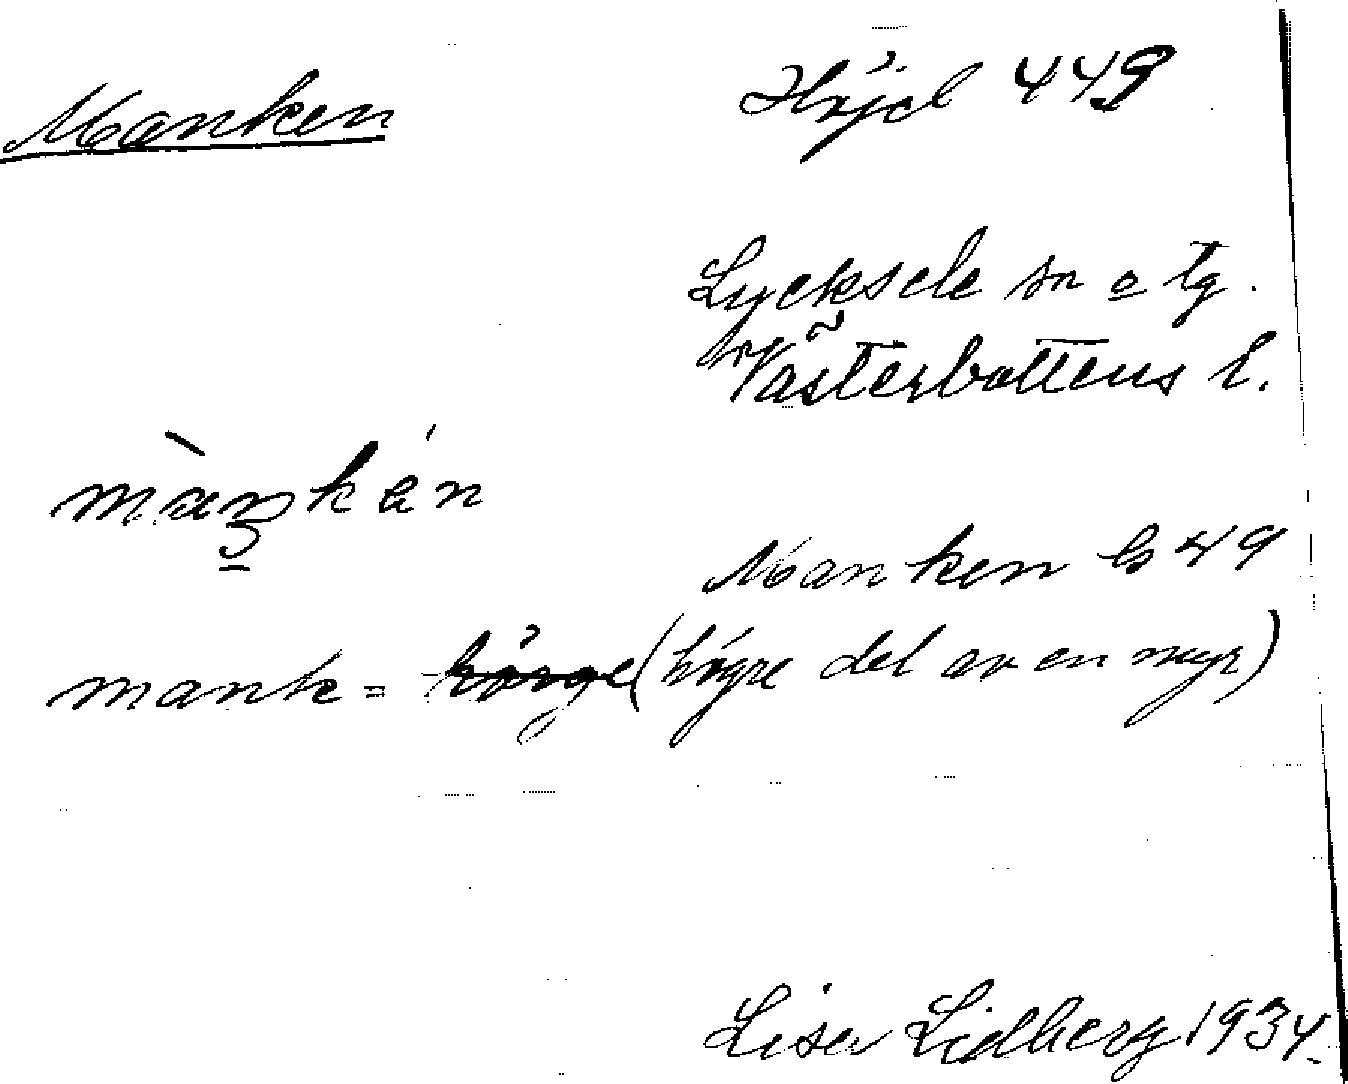 Manken
Höjd 449
Lycksele sn o tg.
Västerbottens l.
mànkén
Manken b 49
mank = (högre del av en myr)
Lisa Lidberg 1934.